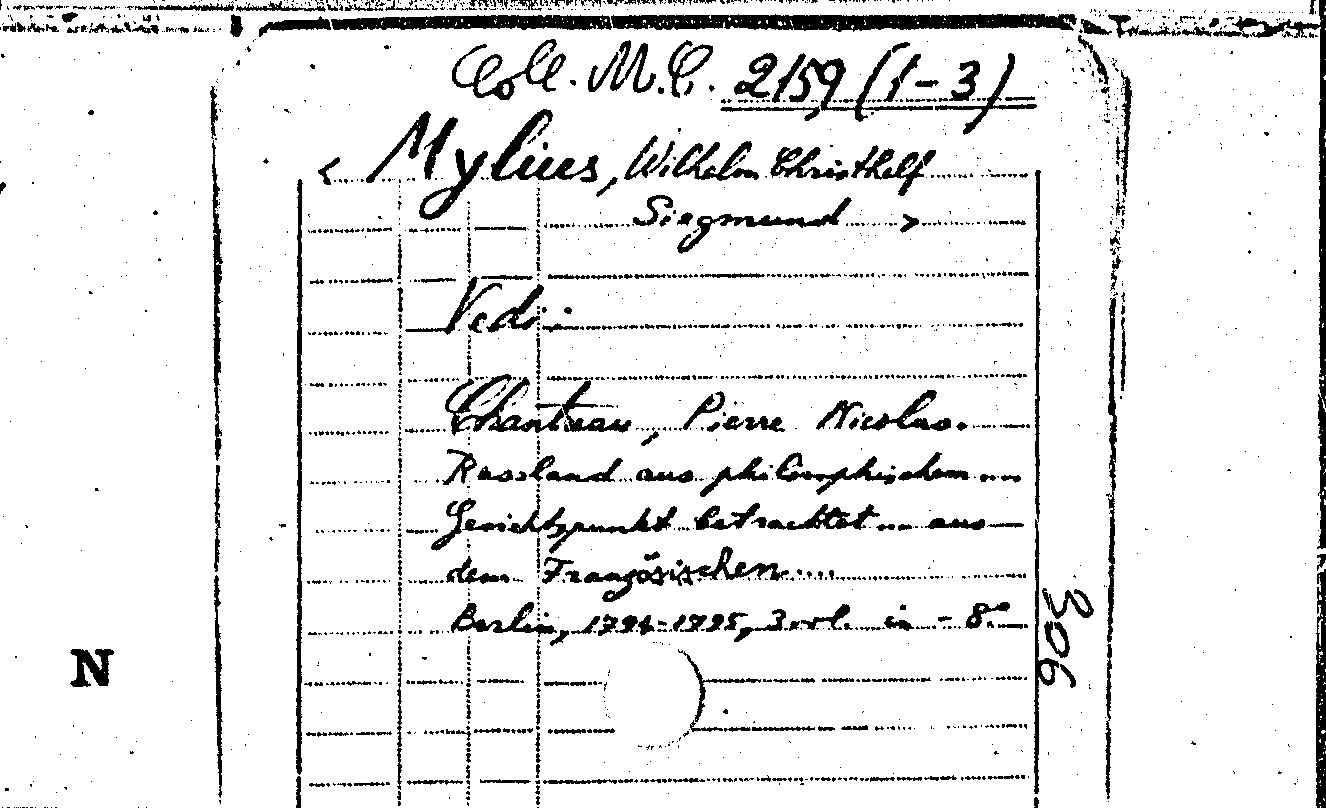 Coll. M.C. 2159 (1-3)
< Mylius, Wilhelm Christhelf
Siegmund >
Vedi:
Chantreau, Pierre Nicolas.
Russland aus philosophischem ...
Gesichtspunkt betrachtet ... aus
dem Französischen ....
Berlin, 1794-1795, 3 vol. in - 8°
306
N